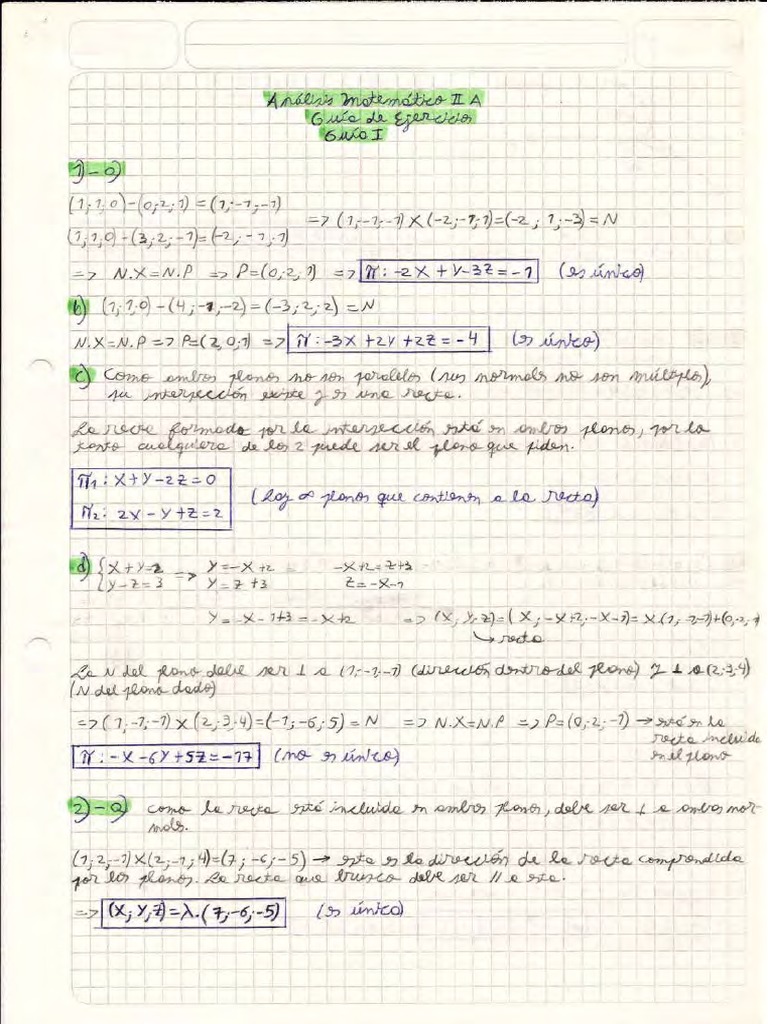 Análisis Matemático II A
Guía de Ejercicios
Guía I
1)-a)
(1;1;0)-(0;2;1)=(1;-1;-1)
=> (1;-1;-1)X(-2;-1;1)=(-2;1;-3)=N
(1;1;0)-(3;2;-1)=(-2;-1;1)
=> N.X=N.P => P=(0;2,1) => π:-2X+Y-3Z=-1 (es único)
b) (1;1,0)-(4;-1;-2)=(-3;2;2)=N
N.X=N.P => P=(2,0;1) => π:-3X+2Y+2Z=-4 (es único)
c) Como ambos planos no son paralelos (sus normales no son múltiplos),
su intersección existe y es una recta.
La recta formada por la intersección está en ambos planos, por lo
tanto cualquiera de los 2 puede ser el plano que piden.
π1: X+Y-2Z=0
(hay ∞ planos que contienen a la recta)
π2: 2X-Y+Z=2
d) {X+Y=2 => Y=-X+2 -X+2=Z+3
{Y-Z=3 Y=Z+3 Z=-X-1
Y=-X-1+3=-X+2 => (X;Y;Z)=(X;-X+2;-X-1)=X.(1;-1;-1)+(0;2;-1)
↳ recta
La N del plano debe ser ⊥ a (1;-1;-1) (dirección dentro del plano) y ⊥ a (2;3;4)
(N del plano dado)
=> (1;-1;-1)X(2;3;4)=(-1;-6;5)=N => N.X=N.P => P=(0;2;-1) → está en la
recta incluida
en el plano
π:-X-6Y+5Z=-17 (no es único)
2)-a) como la recta está incluida en ambos planos, debe ser ⊥ a ambos nor-
males.
(1;2;-1)X(2;-1;4)=(7;-6;-5) → esta es la dirección de la recta comprendida
por los planos. La recta que busco debe ser // a esta.
=> (X;Y;Z)=λ.(7;-6;-5) (es único)